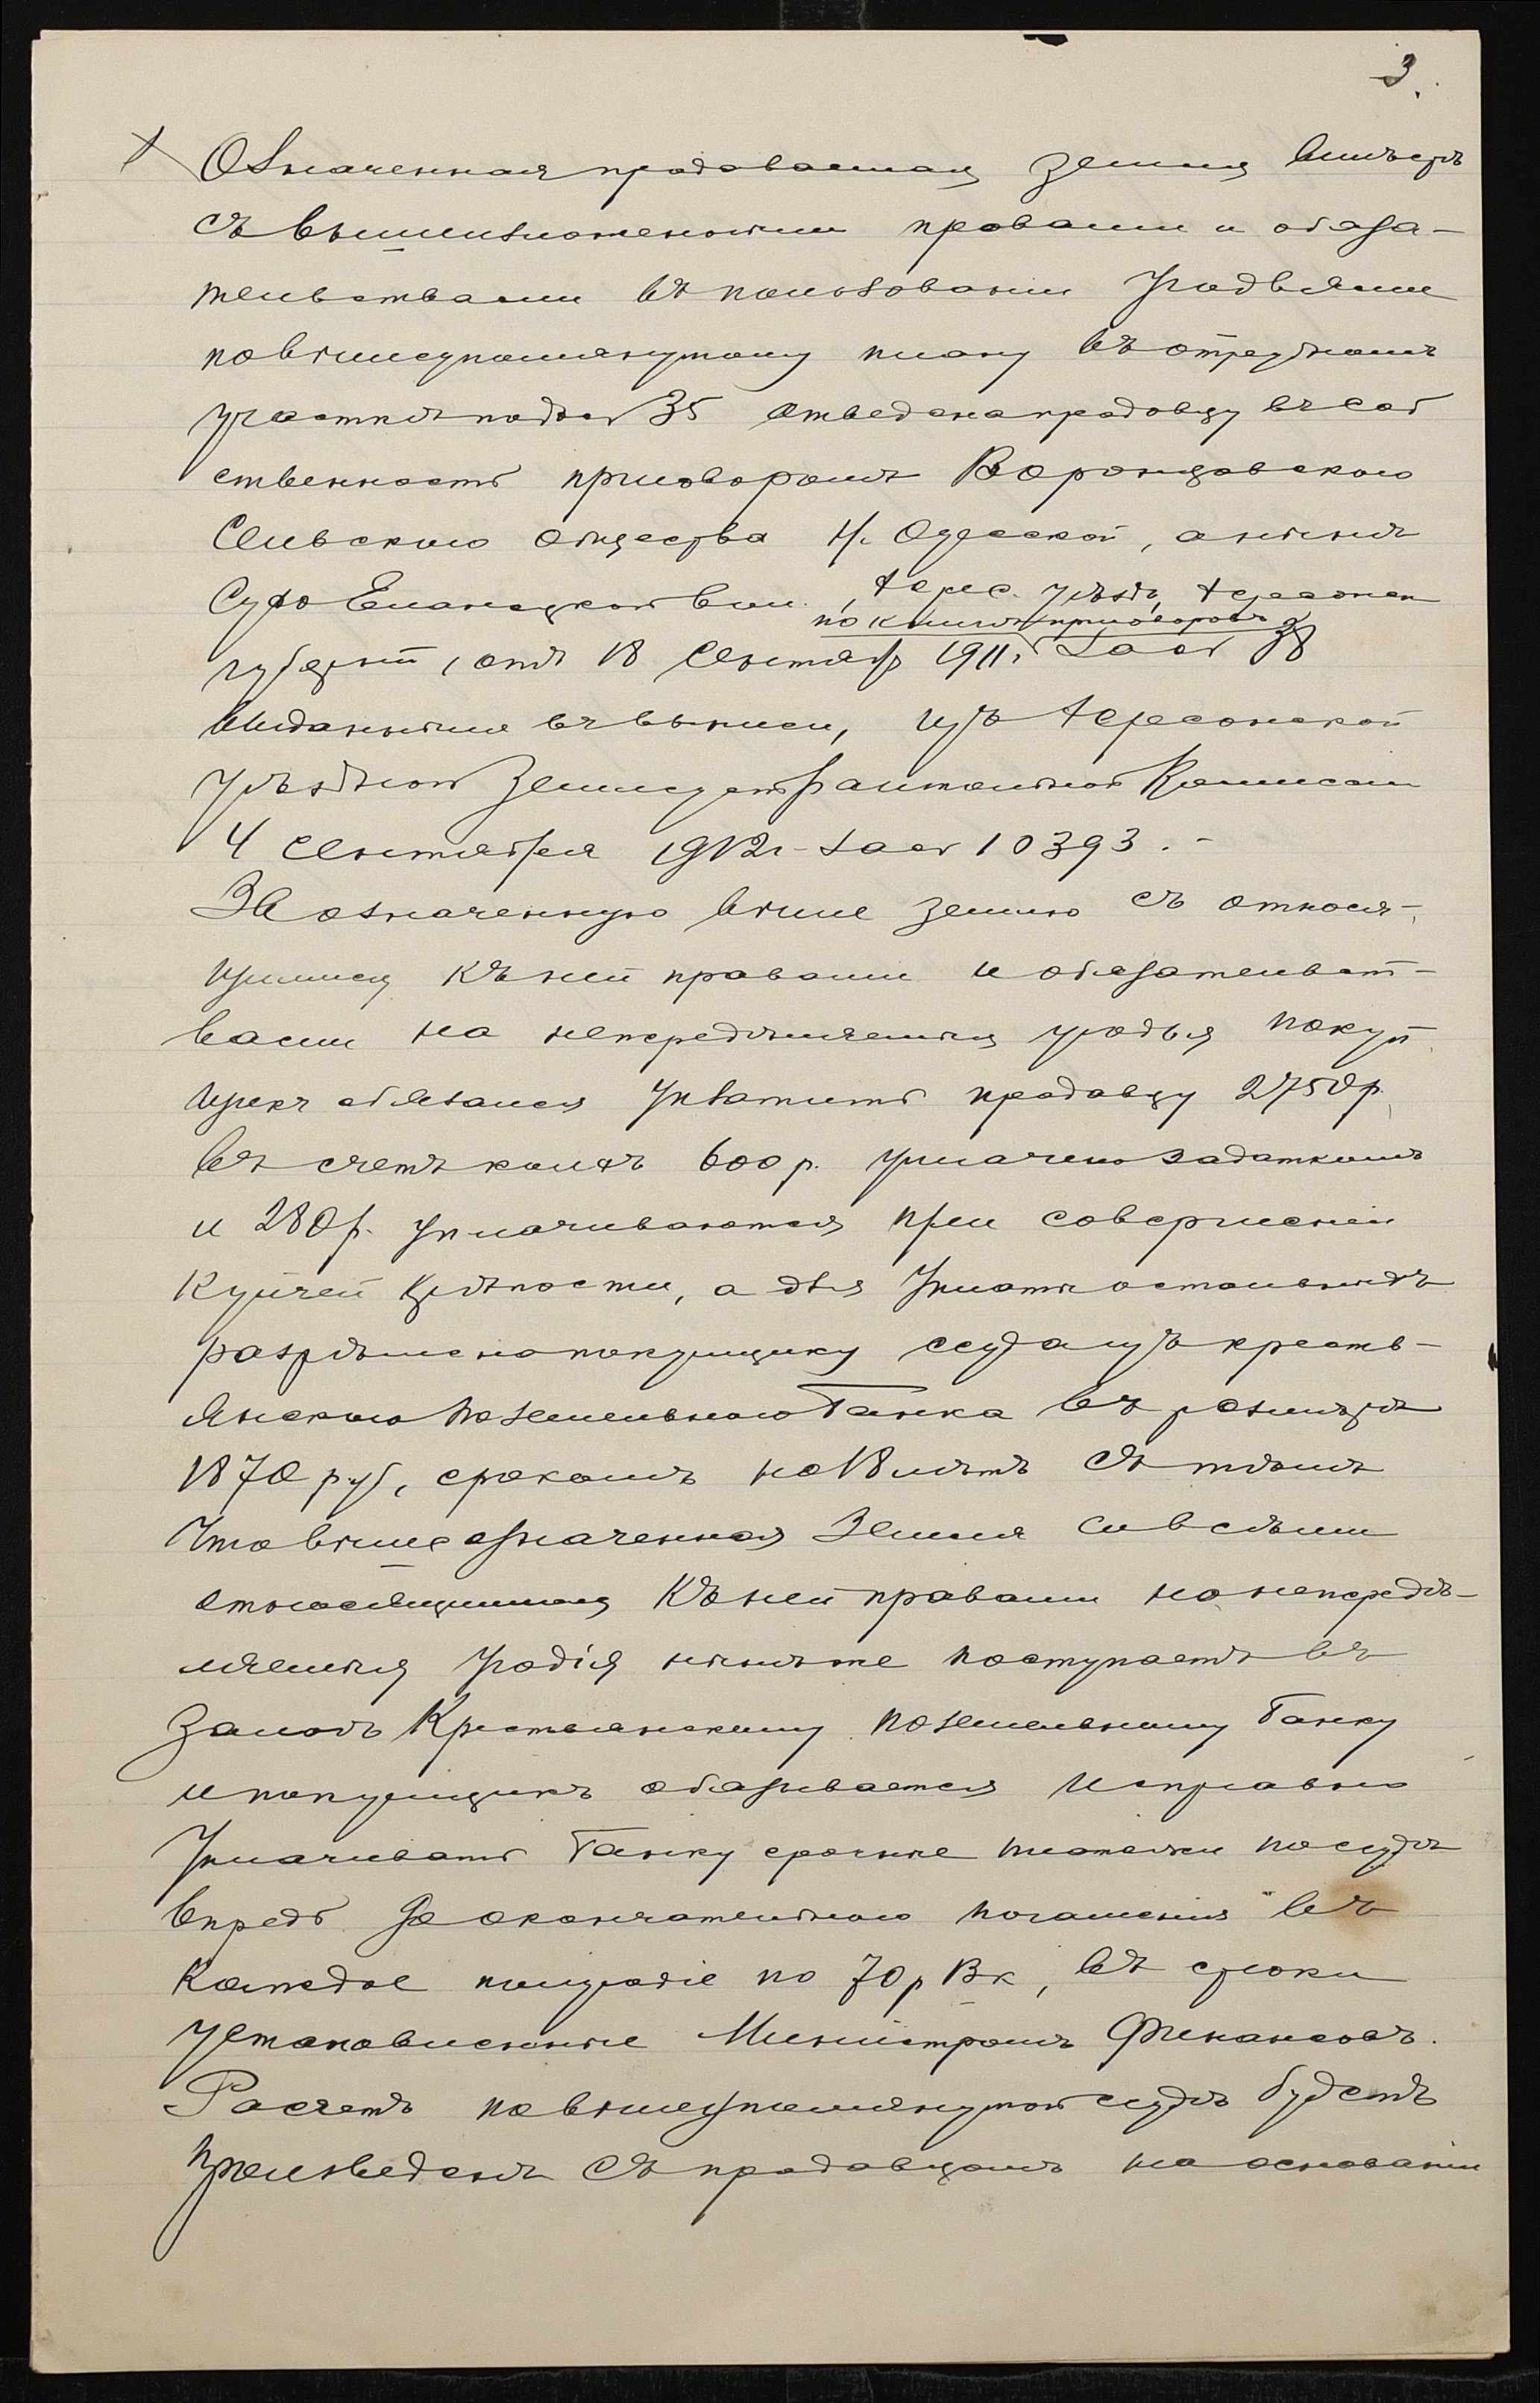 3.
Означенная продаваемая земля вместѣ
съ вышеизложенными правами и обяза-
тельствами въ пользовании угодьями
по вышеупомянутому плану въ отрубномъ
участкѣ подъ № 35 отведена продавцу въ соб
ственность приговоромъ Воронцовского
Сельского общества Н. Одесской, а нынѣ
Еланецкой вол., Херс. уѣзда, Херсонск
по книгѣ приговоровъ
губерніи, отъ 18 Сентября 1911 г. за № 38
выданными въ выписи, изъ Херсонской
уѣздной Землеустроительной Коммисіи
4 Сентября 1912 г. за № 10393. -
За означенную выше землю съ относя-
щимися къ ней правами и обязательст-
вами на непередѣляемыя угодья покуп
щикъ обязался уплатить продавцу 2750 р.
въ счетъ коихъ 600 р. уплачено задаткомъ
и 280 р. уплачиваются при совершеніи
купчей крѣпости, а для уплаты остальныхъ
разрѣшена покупщику ссуда изъ кресть-
янского Поземельного Банка въ размѣрѣ
1870 руб, срокомъ на 18 лѣтъ съ тѣмъ
что вышеозначенная Земля со всѣми
относящимися къ ней правами на непередѣ-
ляемыя угодія нынѣ же поступаетъ въ
залогъ Крестьянскому поземельному Банку
и покупщикъ обязывается исправно
Уплачивать Банку срочные платежи по ссудѣ
впредь до окончательного погашения въ
каждое полугодіе по 70 р. 13 к., въ сроки
установленные Министромъ Финансовъ.
Расчетъ по вышеупомянутой ссудѣ будетъ
произведенъ съ продавцомъ на основаніи